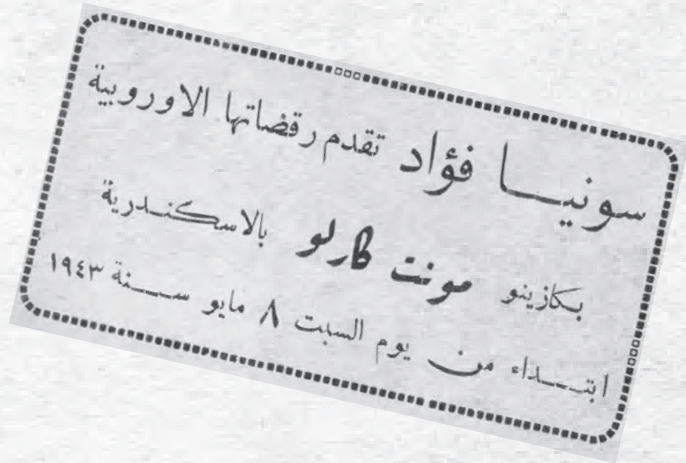 سونيا فؤاد تقدم رقصاتها الاوروبية
بكازينو مونت كارلو بالاسكندرية
ابتداء من يوم السبت ٨ مايو سنة ١٩٤٣